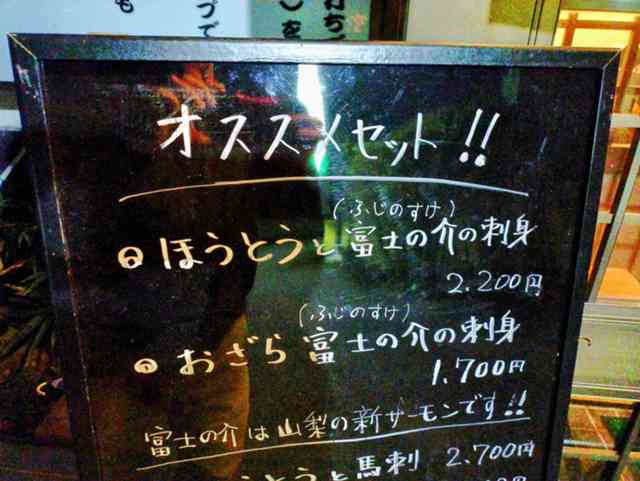 オススメセット!!
(ふじのすけ)
ほうとうと富士の介の刺身
2.200円
(ふじのすけ)
おざら富士の介の刺身
1.700円
富士の介は山梨の新サーモンです!!
ほうとうと馬刺 2.700円